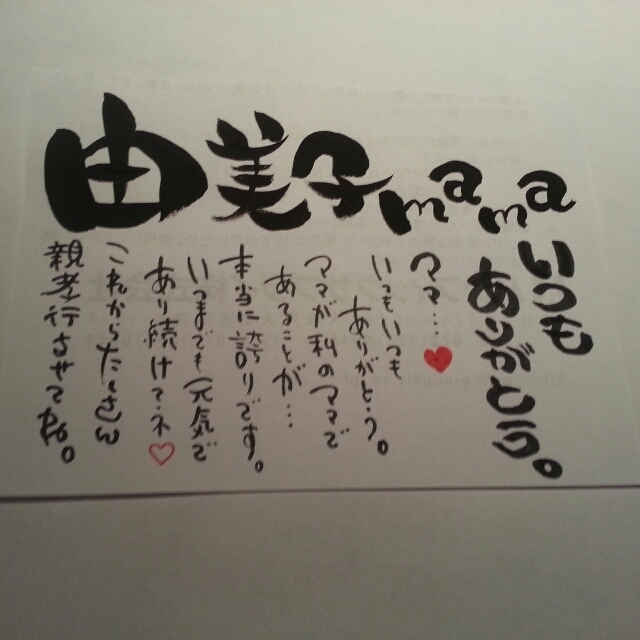 由美子mama
いつも
ありがとう。
ママ…
いつもいつも
ありがとう。
ママが私のママで
あることが…
本当に誇りです。
いつまでも元気で
あり続けてネ
これからたくさん
親孝行させてね。